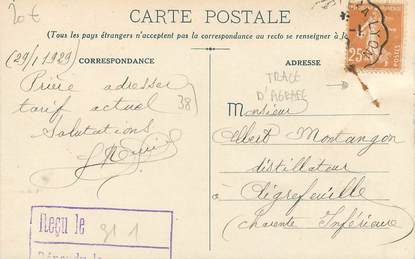 20€
CARTE POSTALE
(Tous les pays étrangers n'acceptent pas la correspondance au recto se renseigner à la
CORRESPONDANCE
ADRESSE
LYON
25c
POSTES
(29/1 1929)
Prière adresser
tarif actuel
Salutations
38
TRACE
D'AGRAFE
Monsieur
Albert Montangon
distillateur
à Aigrefeuille
Charente Inférieure
Reçu le 31 1
Répondu le